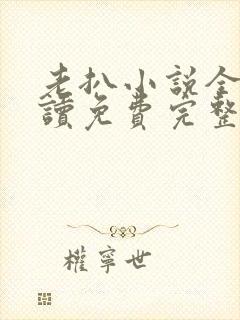 老扒小说全
讀免費完整
權寧世